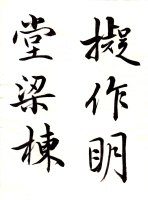 擬作明
堂梁棟